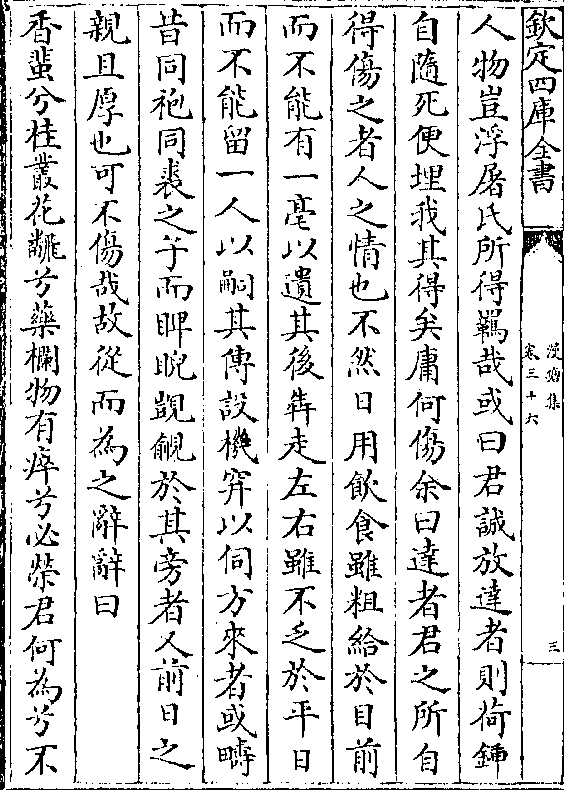 欽定四庫全書
漫塘集
卷三十六
三
人物豈浮屠氏所得羈哉或曰君誠放達者則荷鍤
自隨死便埋我其得矣庸何傷余曰達者君之所自
得傷之者人之情也不然日用飲食雖粗給於目前
而不能有一毫以遺其後犇走左右雖不乏於平日
而不能留一人以嗣其傳設機穽以伺方來者或疇
昔同袍同裘之予而睥睨覬覦於其旁者又前日之
親且厚也可不傷哉故從而為之辭辭曰
香蜚兮桂叢花飄兮藥欄物有瘁兮必榮君何為兮不